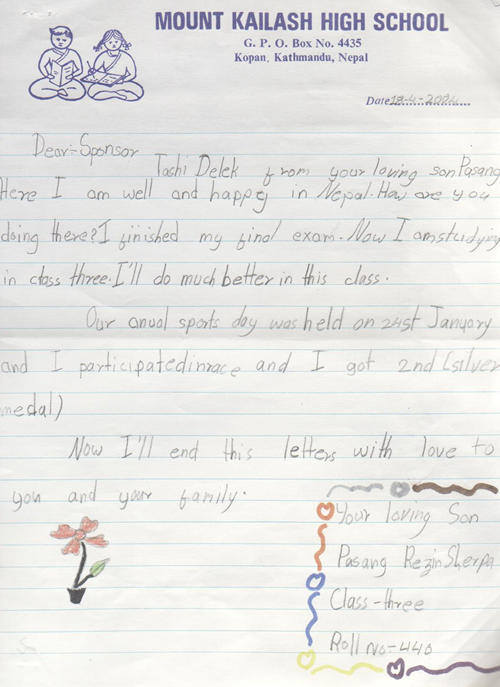 MOUNT KAILASH HIGH SCHOOL
G. P. O. Box No. 4435
Kopan, Kathmandu, Nepal
Date 18-4-2004
Dear:- Sponsor
Tashi Delek from your loving son Pasang
Here I am well and happy in Nepal. How are you
doing there? I finished my final exam. Now I am studying
in class three. I'll do much better in this class.
Our anual sports day was held on 24st January
and I participated in race and I got 2nd (silver
medal)
Now I'll end this letters with love to
you and your family.
Your loving Son
Pasang Rezin Sherpa
Class-three
Roll no-440